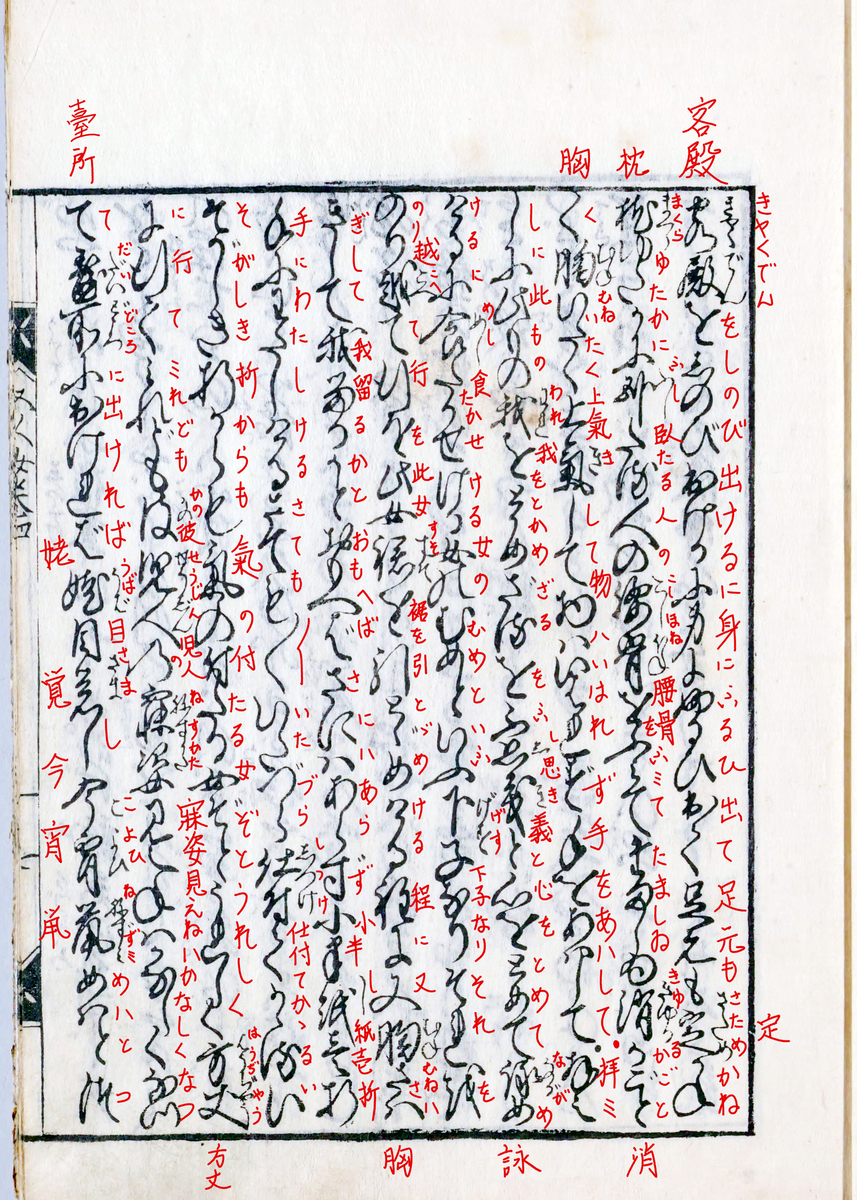 きやくでん
客殿をしのび出けるに身にふるひ出て足元も定かね
枕ゆたかに臥たる人の腰骨をふミてたましゐ消るごと
く胸いたく上氣して物ハいはれず手をあハして拝ミ
しに此もの我をとがめざるをふし思義と心をとめて詠め
けるに食たかせける女のむめといふ下子なりそれを
のり越て行を此女裾を引とゞめける程に又胸さハ
ぎして我留るかとおもへばさにハあらず小半紙壱折
手にわたしけるさても／＼いたづら仕付てかゝるい
そがしき折からも氣の付たる女ぞとうれしく方丈
に行てミれども彼児人の寐姿見えねハかなしくなつ
て臺所に出ければ姥目覚し今宵鼠めハとつ
客殿
枕
胸
臺所
定
消
詠
胸
方丈
姥
覚
今宵鼠